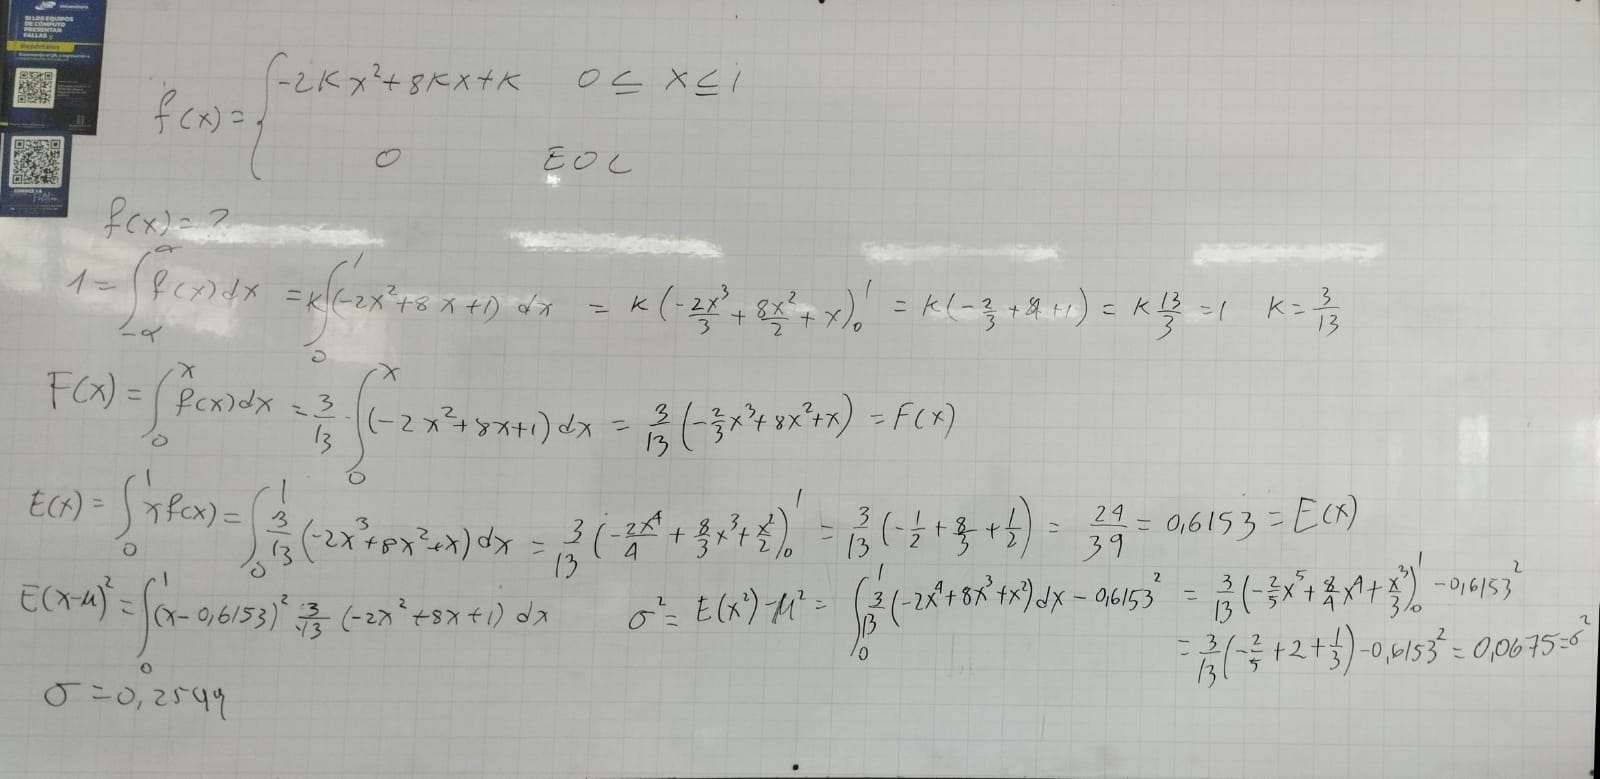 SI LOS EQUIPOS
DE CÓMPUTO
PRESENTAN
FALLAS
Repórtalos
CONOCE LA
f(x) = { -2Kx² + 8Kx + K    0 ≤ x ≤ 1
0    EOC
f(x) = ?
1 = ∫_{-α}^{α} f(x)dx = K∫_0^1 (-2x² + 8x + 1) dx = K(-2x³/3 + 8x²/2 + x)_0^1 = K(-2/3 + 4 + 1) = K 13/3 = 1   K = 3/13
F(x) = ∫_0^x f(x)dx = 3/13 ∫_0^x (-2x² + 8x + 1) dx = 3/13 (-2/3 x³ + 8x² + x) = F(x)
E(x) = ∫_0^1 x f(x) = ∫_0^1 3/13 (-2x³ + 8x² + x) dx = 3/13 (-2x⁴/4 + 8/3 x³ + x²/2)_0^1 = 3/13 (-1/2 + 8/3 + 1/2) = 24/39 = 0,6153 = E(x)
E(x-μ)² = ∫_0^1 (x - 0,6153)² 3/13 (-2x² + 8x + 1) dx   σ² = E(x²) - μ² = ∫_0^1 3/13 (-2x⁴ + 8x³ + x²) dx - 0,6153² = 3/13 (-2/5 x⁵ + 8/4 x⁴ + x³/3)_0^1 - 0,6153²
= 3/13 (-2/5 + 2 + 1/3) - 0,6153² = 0,0675 = σ²
σ = 0,2599